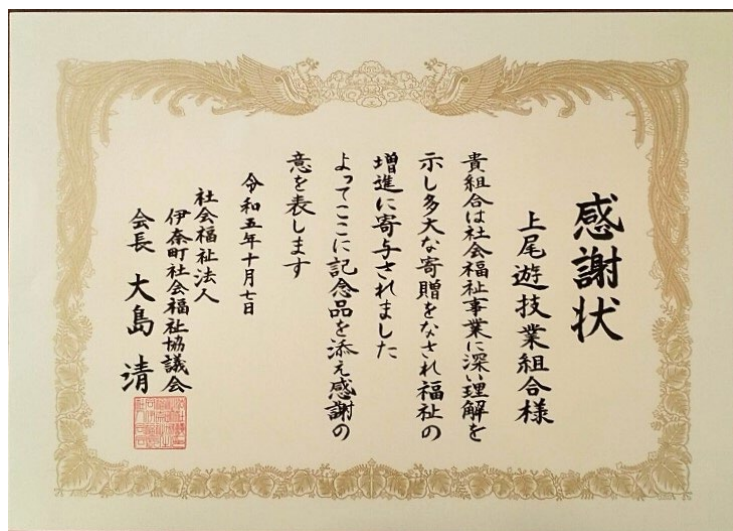 感謝状
上尾遊技業組合様
貴組合は社会福祉事業に深い理解を
示し多大な寄贈をなされ福祉の
増進に寄与されました
よってここに記念品を添え感謝の
意を表します
令和五年十月七日
社会福祉法人
伊奈町社会福祉協議会
会長 大島 清